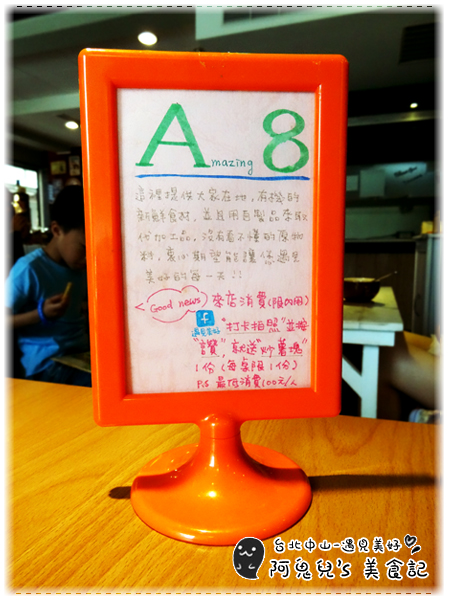 Amazing 8
這裡提供大家在地,有機的
新鮮食材,並且用自製品來取
代加工品,沒有看不懂的添加物
料,衷心期望能讓您遇見
美好的每一天!!
Good news 來店消費(限內用)
f "打卡拍照"並按
遇見美好
"讚",就送"炒薯塊"
1份(每桌限1份)
P.S 最低消費100元/人
台北中山-遇見美好
阿鬼兒's 美食記